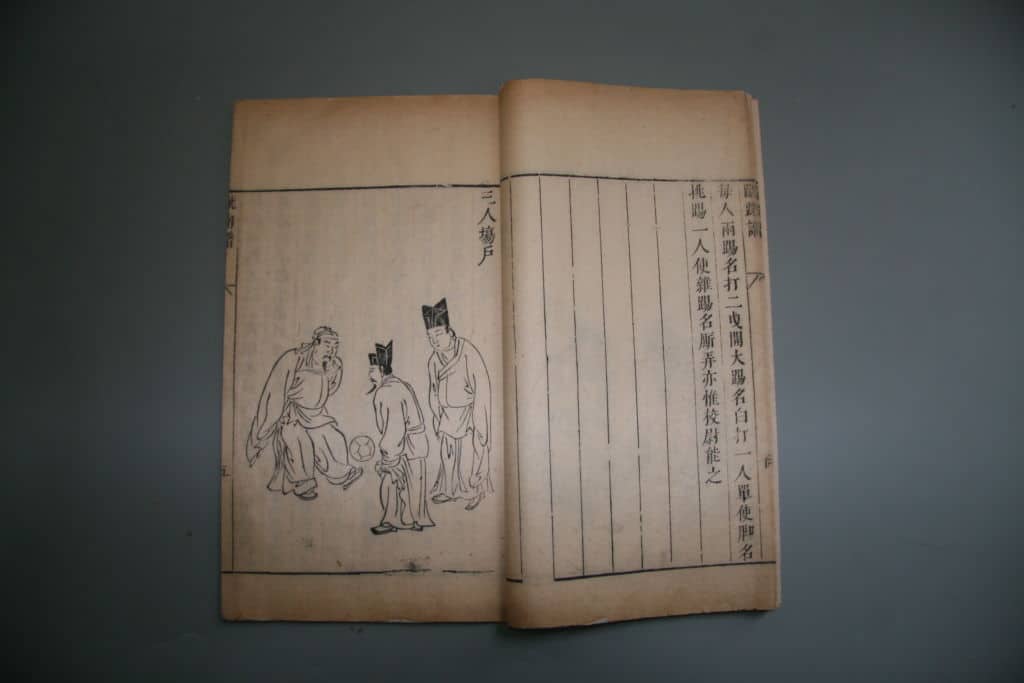 蹴踘譜
毎人兩踢名打二曳開大踢名白打一人單使脚名
挑踢一人使雜踢名厮弄亦惟校尉能之
三人塲戶
五